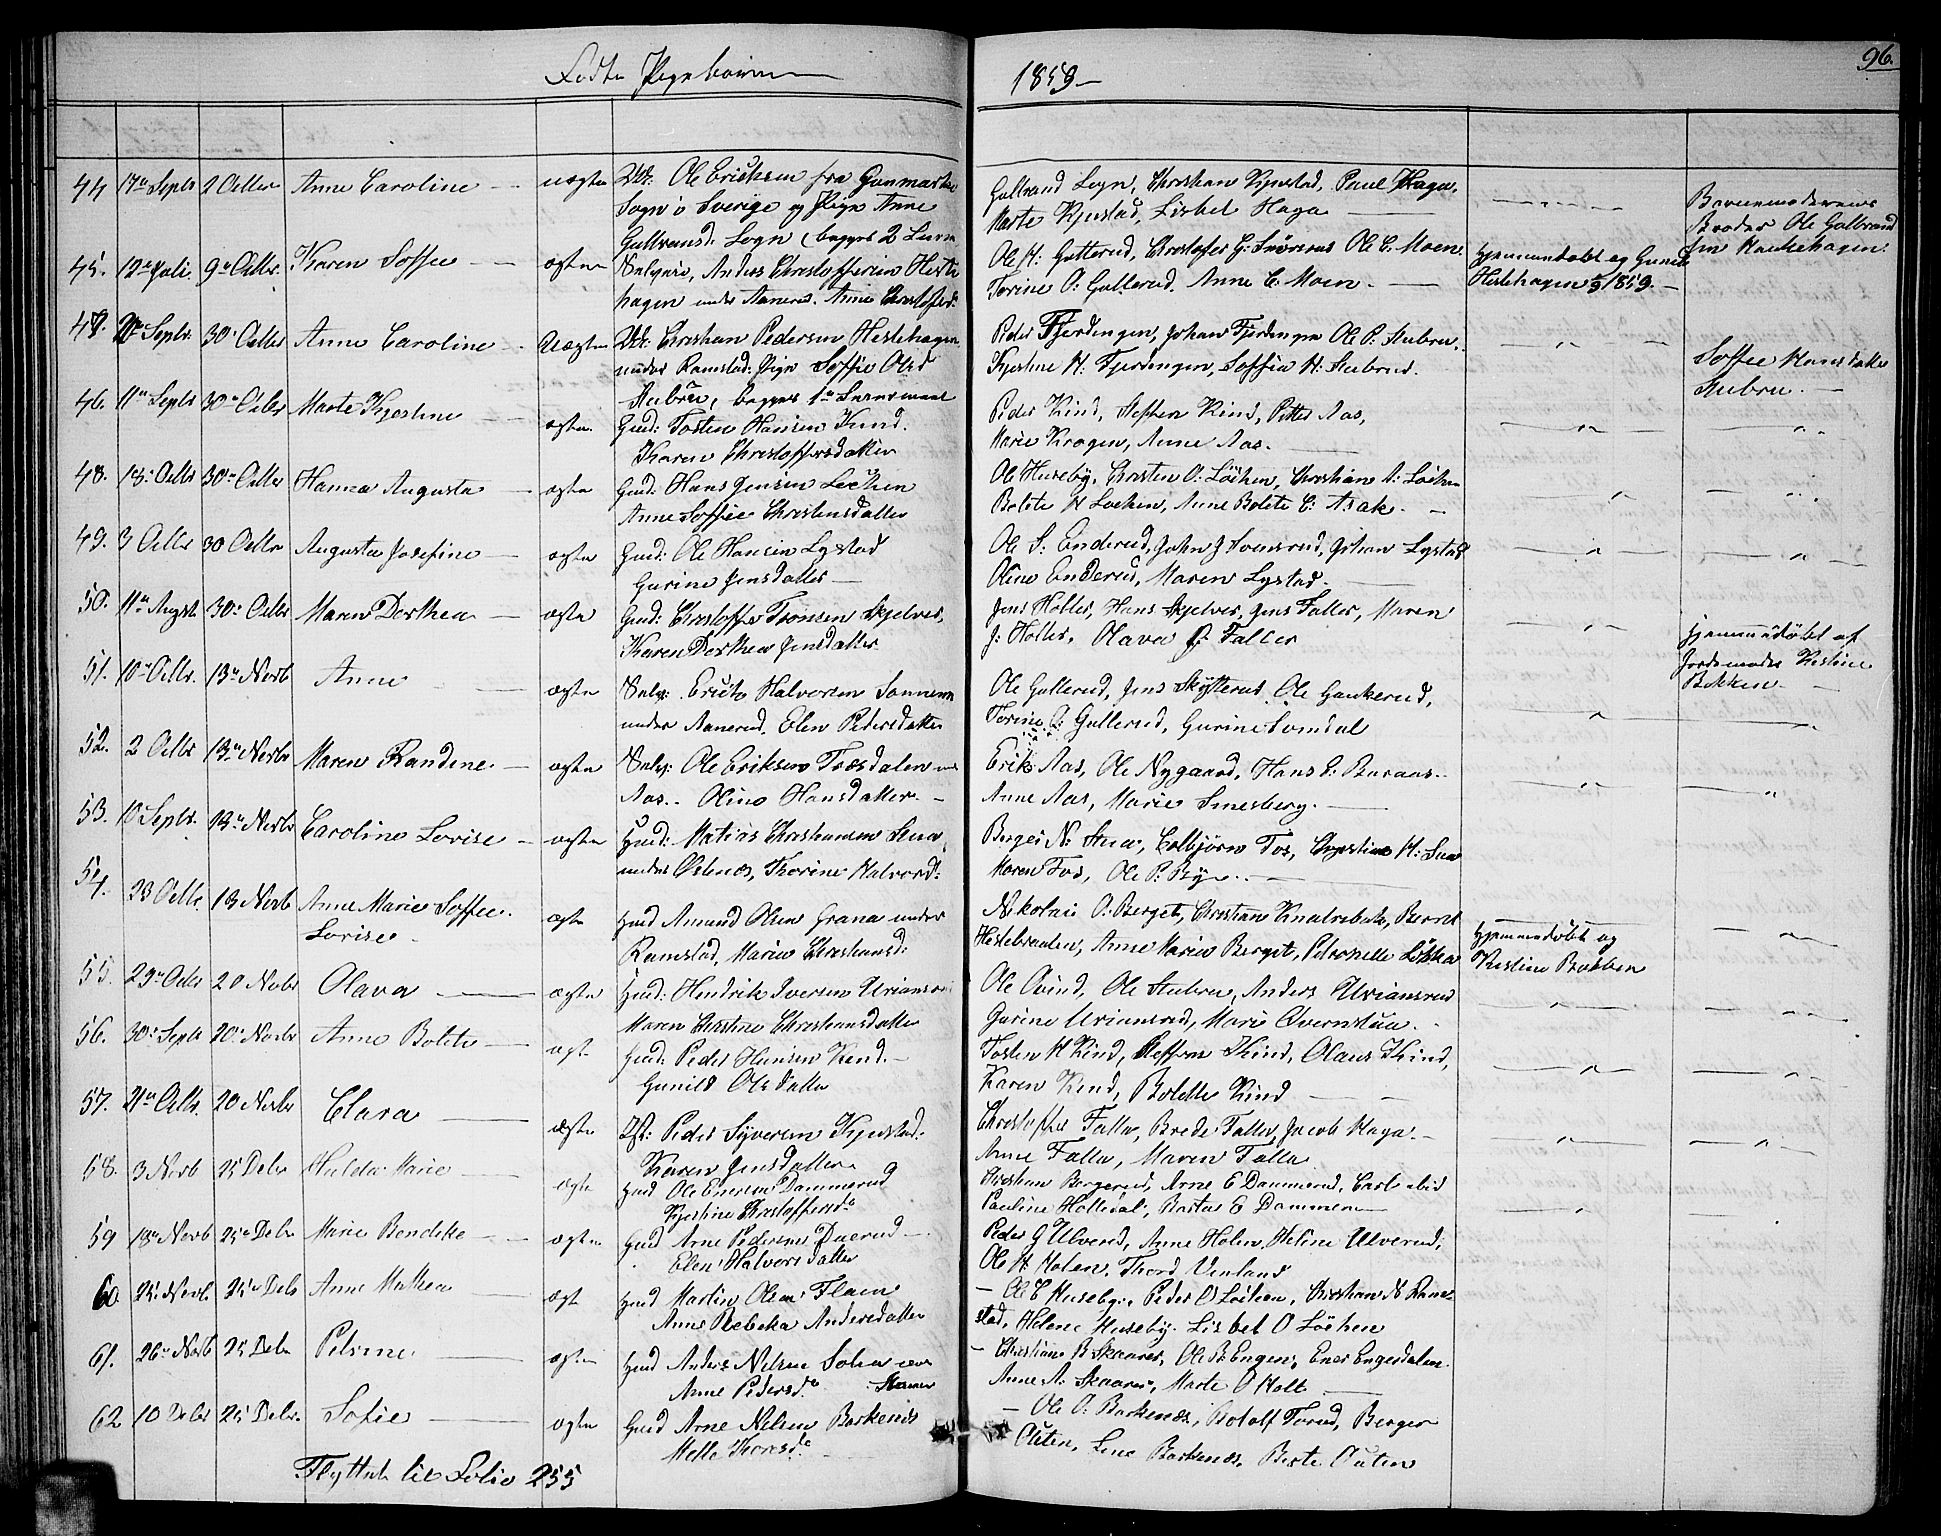 Födte Pigebörn
1859 —
96.
44 17de Septr 2 Octbr Anne Caroline — uægte Ole Eriksen fra Gunmarks
Sogn i Sverige og Pige Anne
Gulbrands. Sogn (begges 2 Leierm
Gulbrand Sogn, Christian Kjnstad, Paul Haga,
Marte Kjnstad, Lisbet Haga —
Barnemoderens
Broder Ole Gulbrand
sen Haukehagen.
45. 12te Juli. 9de Octbr. Karen Soffie — ægte Selveier, Anders Christoffersen Heste
hagen under Aanerud. Anne Christofersd.
Ole H. Gulterud, Christofer G. Ole C. Moen
Torine O. Gullerud, Anne C. Moen. —
hjemmedøbt og Gunild
Hestehagen 1859. —
47. Septr. 30. Octbr Anne Caroline — Uægte Christian Pedersen Hestehagen
under Ramstad. Pige Soffie Olsd
Stubru, begges 1ste Leiermaal
Peder Fjerdingen, Johan Fjerdingen Ole P. Stubru,
Kjestine H. Fjerdingen, Soffia H. Stubrud.
Soffie Hansdatter
Stubru. —
46. 11te Septr 30te Octbr Marte Kjestine ægte. Gmd: Tosten Hansen Kind.
Karen Christoffersdatter
Peder Kind, Steffen Kind, Petter Aas,
Marie Krogen, Anne Aas.
48. 18. Octbr 30te Octbr Hanna Augusta — ægte Gmd: Hans Jensen Löchen
Anne Soffie Christensdatter
Ole Huseby, Torsten O. Löchen, Christian A. Löchen
Bolete H Lochen, Anne Bolete C. Asak. —
49. 3 Octbr 30 Octbr Augusta Josefine — ægte Gmd: Ole Hansen Lystad
Gurine Jensdatter —
Ole S. Enderud, John J Svensrud, Johan Lystad
Oline Enderud, Maren Lystad. —
50. 11te Augst. 30. Octbr Maren Dorthea — ægte Gmd: Christoffer Tronsen Skjelver,
Karen Dorthea Jensdatter
Jens Holter, Hans Skjelver, Jens Faller, Maren
J. Holter, Olava J. Faller
hjemmedøbt af
Jordemoder Kestine
Bekken. —
51. 10de Octbr. 13de Novb Anne — ægte Selv: Erik Halvorsen Sonneren
under Aanerud, Elen Pedersdatter
Ole Gullerud, Jens Skytterud Ole Haukerud,
Torine O. Gullerud, Gurine Somdal
52. 2 Octbr 13de Novbr Maren Randine — ægte Selv: Ole Eriksen Træsdalen
Aas. Oline Hansdatter —
Erik Aas, Ole Nygaard, Hans P. Buraas.
Anne Aas, Marie Smesberg. —
53. 10 Septr. 13de Novbr Caroline Lovise — ægte Gmd: Matias Christiansen Stua
under Østenes, Thorine Halvord:
Berger N. Stua, Colbjörn Fos, Christine H. Stua
Maren Fos, Ole P. By. —
54. 23 Octbr. 13 Novb Anne Marie Soffie.
Lovise. ægte Gmd Amund Olsen Grana under
Ramstad, Maria Christiansd:
Nikolai O. Berget, Christian Knatrebak, Bernt
Hestebraaten, Anne Marie Berget, Petronelle Lökka
Hjemmedøbt ag
Kestine Bakken
55. 29de Octbr 20 Novbr Olava — ægte Gmd: Hendrik Iversen Uriansrud
Maren Christine Christiansdatter
Ole Ovind, Ole Stubru, Anders Uriansrud
Gurine Uriansrud, Mari Overnstua.
56. 30. Septr 20. Novbr Anne Bolete — ægte Gmd: Peder Hansen Kend. —
Gunild Olsdatter
Tosten H Kind, Steffen Kind, Olaus Kind,
Karen Kind, Bolette Kind —
57. 21de Octbr. 20 Novbr Clara — ægte Peder Syversen Kjnstad:
Karen Jensdatter
Christoffer Falla, Brede Falla, Jacob Haga. —
Anne Falla, Maren Falla
58. 3 Novb 25 Debr Hulda Marie — ægte Gmd Ole Enersen Dammerud
Kjestine Christoffersda
Christian Bergerud, Arne E Dammerud, Carl
Pauline Holledal, Bertea E Dammen —
59 18de Novb 25de Debr Marie Bendike — ægte Gmd Arne Pedersen Duerud —
Elen Halvorsdatter
Peder G Ulverud, Anne Holen, Heline Ulverud,
Ole H Holen, Thord Venland
60. 25. Novb. 25de Debr Anne Mathea — ægt Gmd Martin Olsen Flaen
Anne Rebeka Andersdatter
— Ole E Huseby, Peder O Löchen, Christian N Ram-
stad, Helene Huseby. Lisbet O Löchen
61. 26de Novb 25 Debr Petrine — ægte Gmd Anders Nilsen Solum
Anne Pedersda.
— Christiane B Skaaret, Ole B. Engen, Ener Engesdalen.
Anne A. Skaaret, Marte O Holt —
62 10 Debr 25 Debr. Sofie — ægte Gmd Arne Nilsen Barkenes
Helle Thoresda.
— Ole O. Barkenes, Botolf Torud, Berger
Outen, Lene Barkenes, Berte Outen
Flyttet til Folio 255